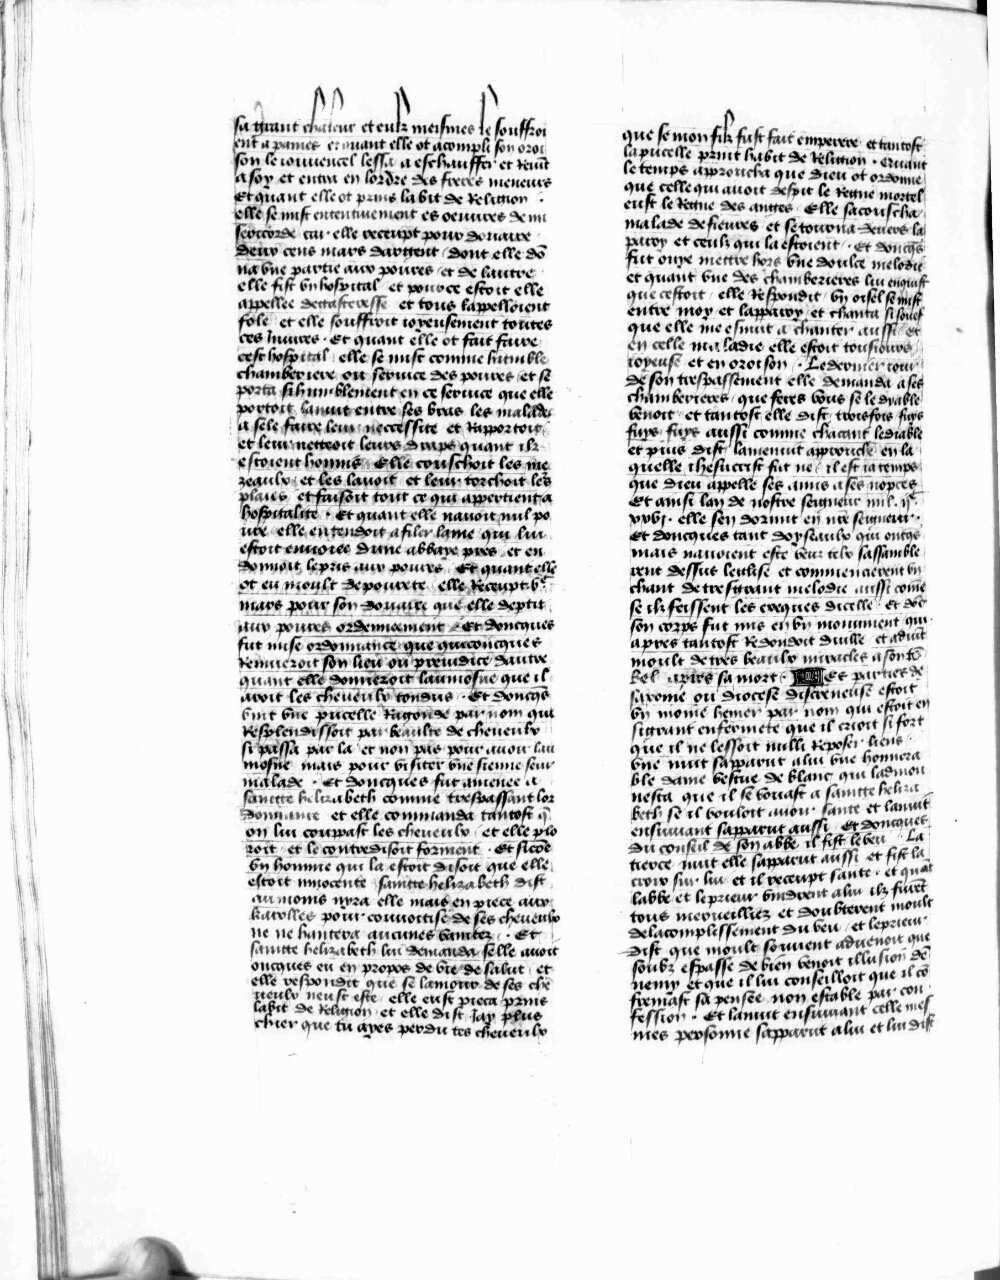 sa grant chaleur et eulz meismes le souffroi
ent a paines et quant elle ot acompli son oroi
son le iouuencel lessa a eschauffer et Reuīt
a soy et entra en lordre des freres meneurs
Et quant elle ot prins labit de Religion ·
elle se mist ententiuement es oeuures de mi
sericorde car elle receupt pour douaire
deux cens mars dargent dont elle dō
na vne partie aux poures et de lautre
elle fist vn hospital et pource estoit elle
appellee degasteresse et tous lappelloient
fole et elle souffroit ioyeusement toutes
ces iniures · Et quant elle ot fait faire
cest hospital elle se mist comme humble
chamberiere ou seruice des poures et se
porta si humblement en ce seruice que elle
portoit la nuit entre ses bras les malades
a sele faire leur neccessite et Rapportoit
et leur nettoit leurs draps quant ilz
estoient honnis Elle couschoit les me
zeaulx et les lauoit et leur torchoit les
plaies et faisoit tout ce qui appertient a
hospitalite · Et quant elle nauoit nul po
ure elle entendoit a filer laine qui lui
estoit enuoiee dune abbaye pres et en
donnoit le pris aux poures Et quant elle
ot eu moult de pourete elle Receupt vᶜ
mars pour son douaire que elle deptit
aux poures ordenneement Et doncques
fut mise ordonnance que quiconcques
Remueroit son lieu ou preiudice dautre
quant elle donneroit laumosne que il
aroit les cheueulx tondus · Et doncqs
vint vne pucelle Ragonde par nom qui
Resplendissoit par beaulte de cheueulx
si passa par la et non pas pour auoir lau
mosne mais pour visiter vne sienne seur
malade · Et doncques fut amenee a
saintte helizabeth comme trespassant lor
donnance et elle commanda tantost q̄
on lui couppast les cheueulx et elle plo
roit et le contredisoit forment · Et sicōe
vn homme qui la estoit disoit que elle
estoit innocente saintte helizabeth dist
au moins nyra elle mais en piece aux
karolles pour conuoitise de ses cheueulx
ne ne hantera aucunes vanitez · Et
saintte helizabeth lui demanda selle auoit
oncques eu en propos de vie de salut et
elle respondit que se lamour de ses che
ueulx neust este elle eust pieca prins
labit de Religion et elle dist Jay plus
chier que tu ayes perdu tes cheueulx
que se mon filz fust fait emperere et tantost
la pucelle print habit de Religion · Et quant
le temps approucha que dieu ot ordonne
que celle qui auoit despit le Regne mortel
eust le Regne des anges Elle sacouscha
malade de fieures et se tourna deuers la
paroy et ceulx qui la estoient · Et doncqs
fut ouye mettre hors vne doulce melodie
et quant vne des chamberieres lui enquist
que cestoit elle Respondit vn oisel se mist
entre moy et la paroy et chanta si souef
que elle me esmut a chanter aussi et
en celle maladie elle estoit tousiours
ioyeuse et en oroison · Le dernier iour
de son trespassement elle demanda a ses
chamberieres que feres vous se le dyable
venoit et tantost elle dist troisfois fuys
fuys fuys aussi comme chacant le diable
et puis dist la mienuit approuche en la
quelle ihesucrist fut ne il est ia temps
que dieu appelle ses amis a ses nopces
Et ainsi lan de nostre seigneur mil · ijᶜ
xxvj · elle sen dormit en nrē seigneur ·
Et doncques tant doyseaulx qui oncqs
mais nauoient este veuz telx sassamble
rent dessus leglise et commencierent vn
chant de tresgrant melodie aussi cōme
se ilz feissent les exeques dicelle et dōc
son corps fut mis en vn monument qui
apres tantost Redondoit duille et aduīt
moult de tres beaulx miracles a son tō
bel apres sa mort · Es parties de
saxonne ou diocese discreneuse estoit
vn moine hemer par nom qui estoit en
si grant enfermete que il crioit si fort
que il ne lessoit nulli Reposer leens ·
vne nuit sapparut a lui vne honnora
ble dame vestue de blanc qui ladmon
nesta que il se vouast a saintte heliza
beth se il vouloit auoir sante et la nuit
ensuiuant sapparut aussi Et doncques
du conseil de son abbe il fist le veu · La
tierce nuit elle sapparut aussi et fist la
croix sur lui et il receupt sante · et quāt
labbe et le prieur vindrent a lui ilz furēt
tous merueilliez et doubterent moult
de lacomplissement du veu et le prieur
dist que moult souuent aduenoit que
soubz espasse de bien venoit illusion de
nemy et que il lui conseilloit que il cō
fermast sa pensee non estable par con
fession · Et la nuit ensuiuant celle mes
mes personne sapparut a lui et lui dist